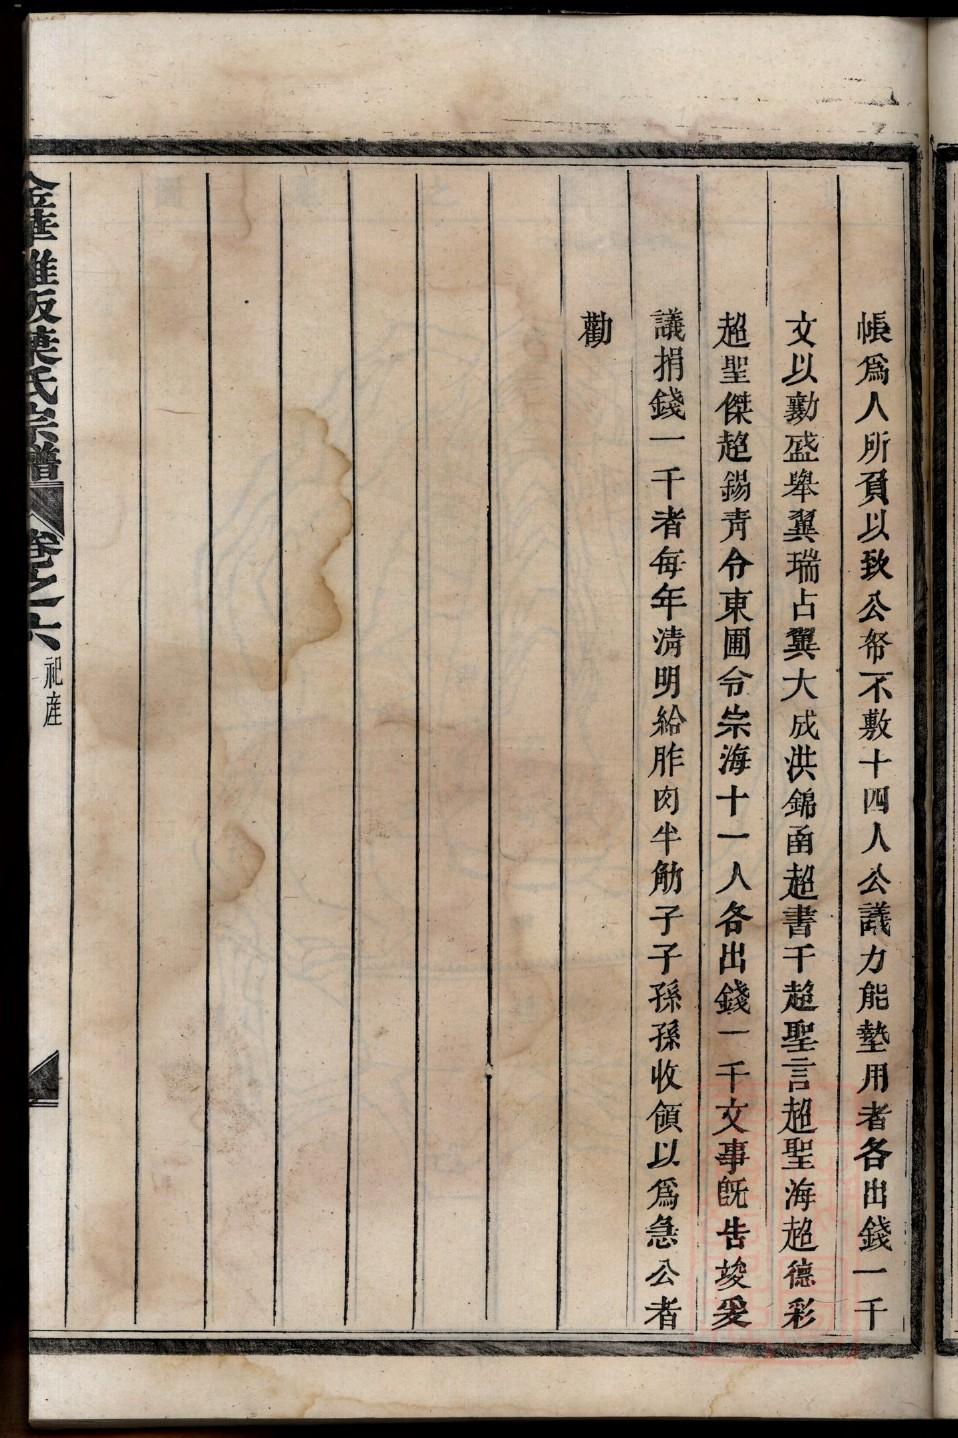 帳爲人所負以致公帑不敷十四人公議力能墊用者各出錢一千
文以勷盛舉翼瑞占翼大成洪錦甬超書千超聖言超聖海超德彩
超聖傑超錫青令東圃令崇海十一人各出錢一千文事旣告竣爰
議捐錢一千者每年清明給胙肉半觔子子孫孫收領以爲急公者
勸
金華雅畈葉氏宗譜 卷之六 祀産